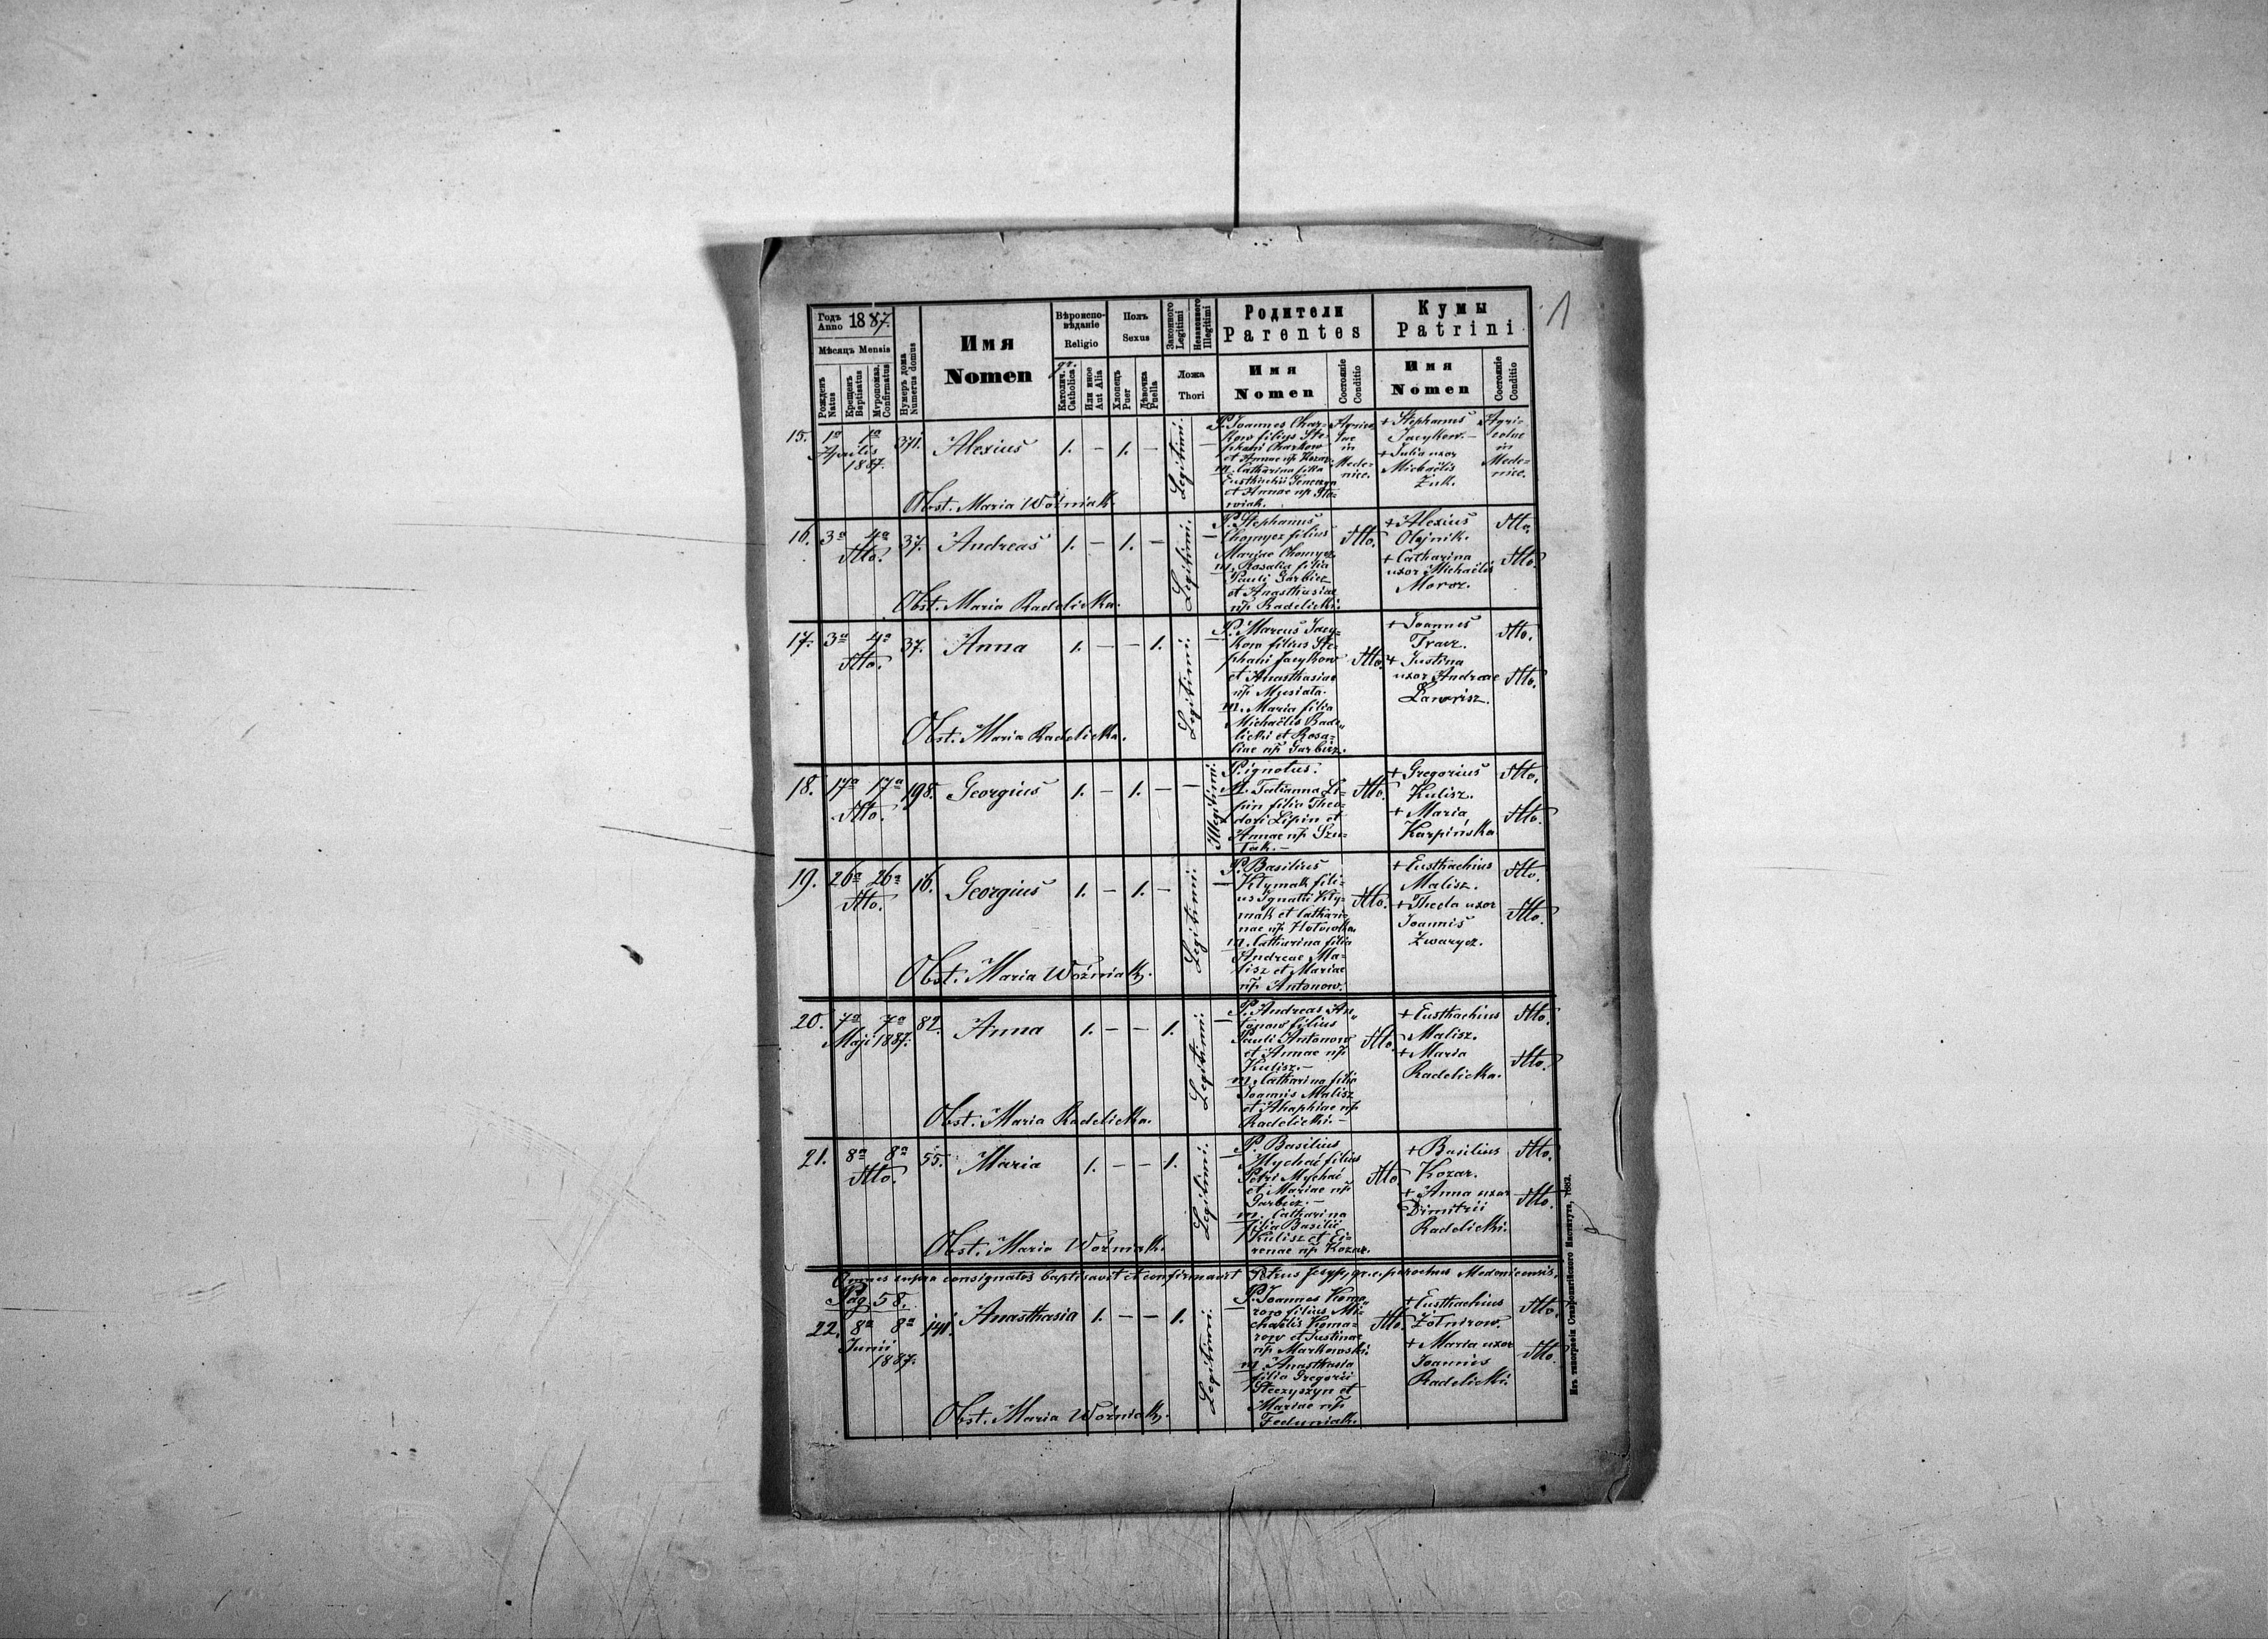 1
Годъ Anno 1887.
Мѣсяцъ Mensis
Рожденъ Natus
Крещенъ Baptisatus
Муропомаз. Confirmatus
Нумеръ дома Numerus domus
Имя Nomen
Вѣроиспо-
вѣданіе
Religio
Католич. Catholica
Или иное Aut Alia
Полъ
Sexus
Хлопецъ Puer
Дѣвочка Puella
Законного Legitimi
Незаконного Illegitimi
Ложа
Thori
Родители
Parentes
Имя
Nomen
Состояніе
Conditio
Кумы
Patrini
Имя
Nomen
Состояніе
Conditio
15. 1a 1a Aprilis 1887. 371. Alexius 1. – 1. – Legitimi. –
P. Joannes Char-
kow filius Ste-
phani Charkow
et Annae np. Kozar.
m. Catharina filia
Eusthachii
et Annae np.
wiak.
Agrico
lae
in
Mede-
nice.
+ Stephanus
Jacykow. –
+ Julia uxor
Michaëlis
Żuk.
Agri-
colae
in
Mede-
nice.
Obst. Maria Woźniak.
16. 3a 4a dtto. 37. Andreas 1. – 1. – Legitimi. –
P. Stephanus
Chomycz filius
Mariae Chomycz
m. Rosalia filia
Pauli Garbicz
et Anasthasiae
np. Radelicki.
dtto.
+ Alexius
Olejnik.
+ Catharina
uxor Michaëlis
Moroz.
dtto.
dtto.
Obst. Maria Radelicka.
17. 3a 4a dtto. 37. Anna 1. – – 1. Legitimi. –
P. Marcus Jacy-
kow filius Ste-
phani Jacykow
et Anasthasiae
np. Mysiata.
m. Maria filia
Michaëlis Rade-
licki et Rosa-
liae np. Garbicz.
dtto.
+ Joannes
Tracz.
+ Justina
uxor Andreae
Lawrisz.
dtto.
dtto.
Obst. Maria Radelicka.
18. 17a 17a dtto. 198. Georgius 1. – 1. – – Illegitimi.
P. ignotus.
M. Tatianna Li-
pin filia Theo-
dori Lipin et
Annae np. Szu-
tak. –
dtto.
+ Gregorius
Kulisz.
+ Maria
Karpińska
dtto.
dtto.
19. 26a 26a dtto. 16. Georgius 1. – 1. – Legitimi. –
P. Basilius
Klymak fili-
us Ignatii Kly-
mak et Cathari-
nae np. Hołowka.
m. Catharina filia
Andreae Ma-
lisz et Mariae
np. Antonow.
dtto.
+ Eusthachius
Malisz.
+ Thecla uxor
Joannis
Zwarycz.
dtto.
dtto.
Obst. Maria Woźniak.
20. 7a 7a Maji 1887. 82. Anna 1. – – 1. Legitimi. –
P. Andreas An-
tonow filius
Pauli Antonow
et Annae np.
Kulisz. –
m. Catharina filia
Joannis Malisz
et Ahaphiae np.
Radelicki. –
dtto.
+ Eusthachius
Malisz.
+ Maria
Radelicka.
dtto.
dtto.
Obst. Maria Radelicka.
21. 8a 8a dtto. 55. Maria 1. – – 1. Legitimi. –
P. Basilius
Mychać filius
Petri Mychać
et Mariae np.
Garbicz. –
m. Catharina
filia Basilii
Kulisz et Ei-
renae np. Kozar.
dtto.
+ Basilius
Kozar.
+ Anna uxor
Dimitrii
Radelicki.
dtto.
dtto.
Obst. Maria Woźniak.
Omnes supra consignatos baptisavit et confirmavit Petrus gr. c. parochus Medenicensis.
Pag 58.
22. 8a 8a Junii 1887. 141. Anasthasia 1. – – 1. Legitimi. –
P. Joannes Koma-
row filius Mi-
chaëlis Koma-
row et Justinae
np. Markowski.
m. Anasthasia
filia Gregorii
Steczyszyn et
Mariae np.
Feduniak.
dtto.
+ Eusthachius
Żołnirow.
+ Maria uxor
Joannis
Radelicki.
dtto.
dtto.
Obst. Maria Woźniak.
Изъ типографіи Ставропигійского Института, 1882.